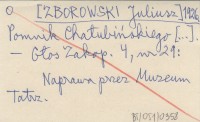 O [ZBOROWSKI Juliusz] 1926
Pomnik Chałubińskiego [...].
– Głos Zakop. 4, nr 29:
Naprawa przez Muzeum
Tatrz.